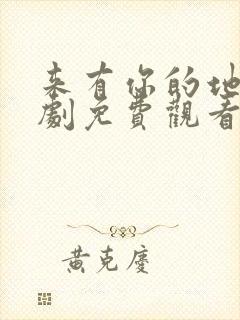 来有你的地
劇免費觀看
黄克慶